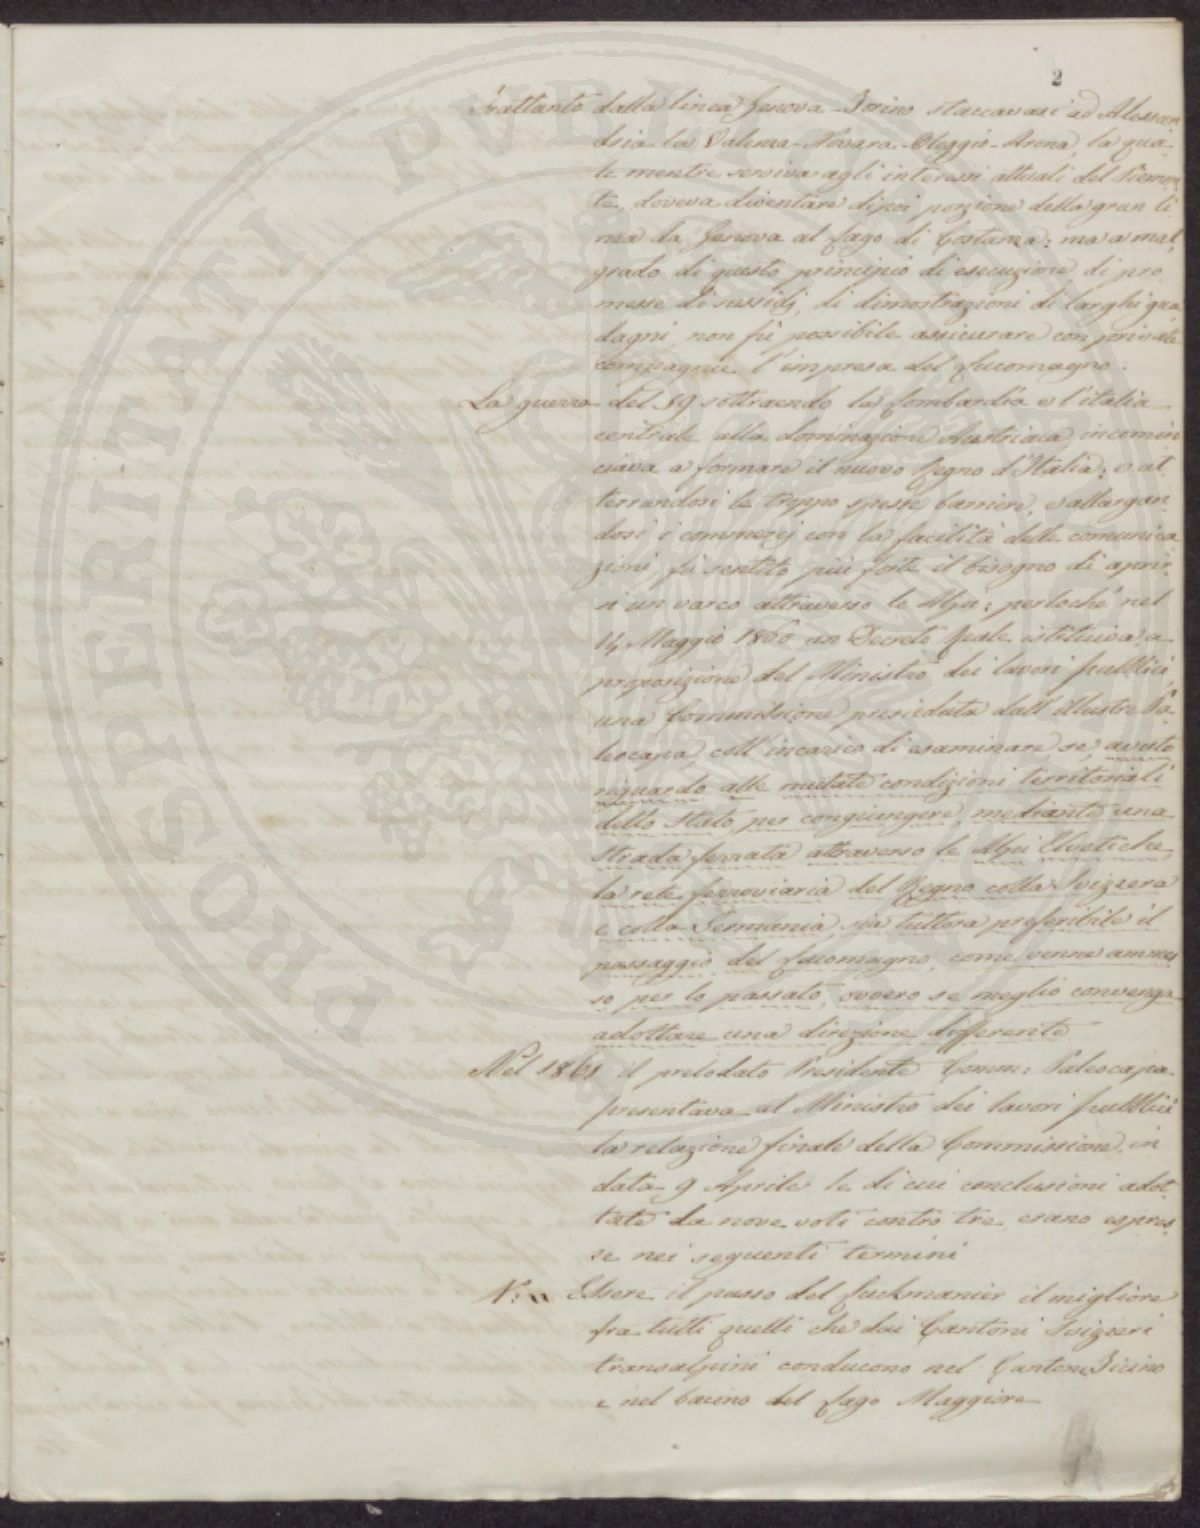 2
Frattanto dalla linea Genova-Torino staccavasi ad Alessan
dria la Valenza-Novara-Oleggio-Arona, la qua
le mentre serviva agli interessi attuali del Piemon
te, doveva diventare dipoi porzione della gran li
nea da Genova al Lago di Costanza: ma a mal
grado di questo principio di esecuzione, di pro
messe di sussidj, di dimostrazioni di larghi gua
dagni, non fù possibile assicurare con private
compagnie l'impresa del Lucomagno.
La guerra del 59 sottraendo la Lombardia e l'italia
centrale alla dominazione Austriaca, incomin
ciava a formare il nuovo Regno d'Italia; e at
terrandosi le troppo spesse barriere, e allargan
dosi i commerzj con la facilità delle comunica
zioni, fù sentito più forte il bisogno di aprir
si un varco attraverso le Alpi: perlochè nel
14 Maggio 1860 un Decreto Reale istituiva, a
proposizione del Ministro dei lavori pubblici,
una Commissione presieduta dall'illustre Pa
leocapa, coll'incarico di esaminare, se, avuto
riguardo alle mutate condizioni territoriali
dello Stato, per congiungere, mediante una
strada ferrata attraverso le Alpi Elvetiche,
la rete ferroviaria del Regno colla Svizzera
e colla Germania, sia tuttora preferibile il
passaggio del Lucomagno, come venne ammes
so per lo passato, ovvero se meglio convenga
adottare una direzione differente
Nel 1861 il prelodato Presidente Comm: Paleocapa
presentava al Ministro dei lavori pubblici
la relazione finale della Commissione, in
data 9 Aprile le di cui conclusioni adot
tate da nove voti contro tre, erano espres
se nei seguenti termini
Essere il passo del Luckmanier il migliore
fra tutti quelli che dai Cantoni Svizzeri
transalpini conducono nel Cantone Ticino
e nel bacino del Lago Maggiore
PROSPERITATI PVBLICAE